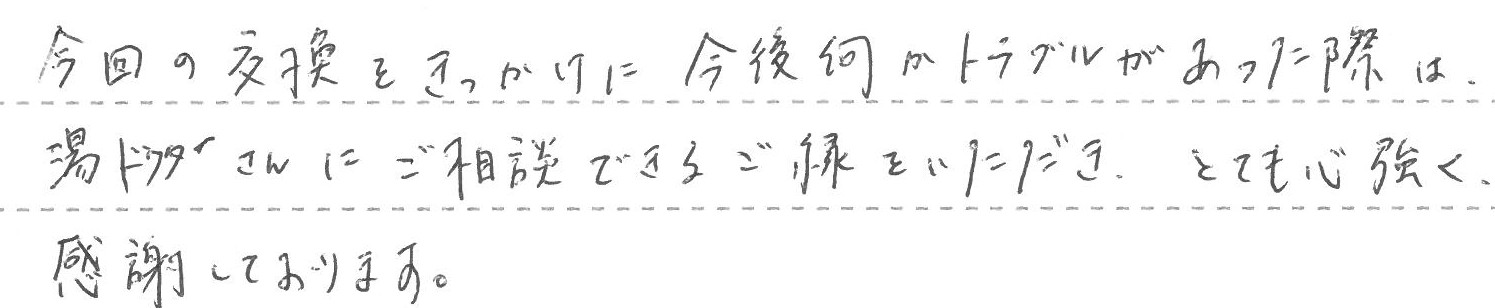 今回の交換をきっかけに今後何かトラブルがあった際は、
湯ドクターさんにご相談できるご縁をいただき、とても心強く、
感謝しております。